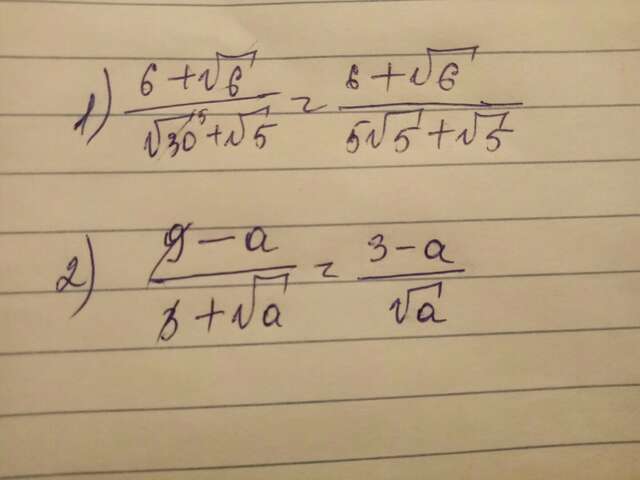 1) (6 + √6) / (√30⁵ + √5) = (6 + √6) / (5√5 + √5)
2) (9 − a) / (3 + √a) = (3 − a) / √a